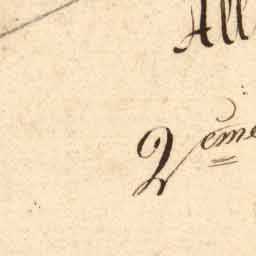 All
2eme